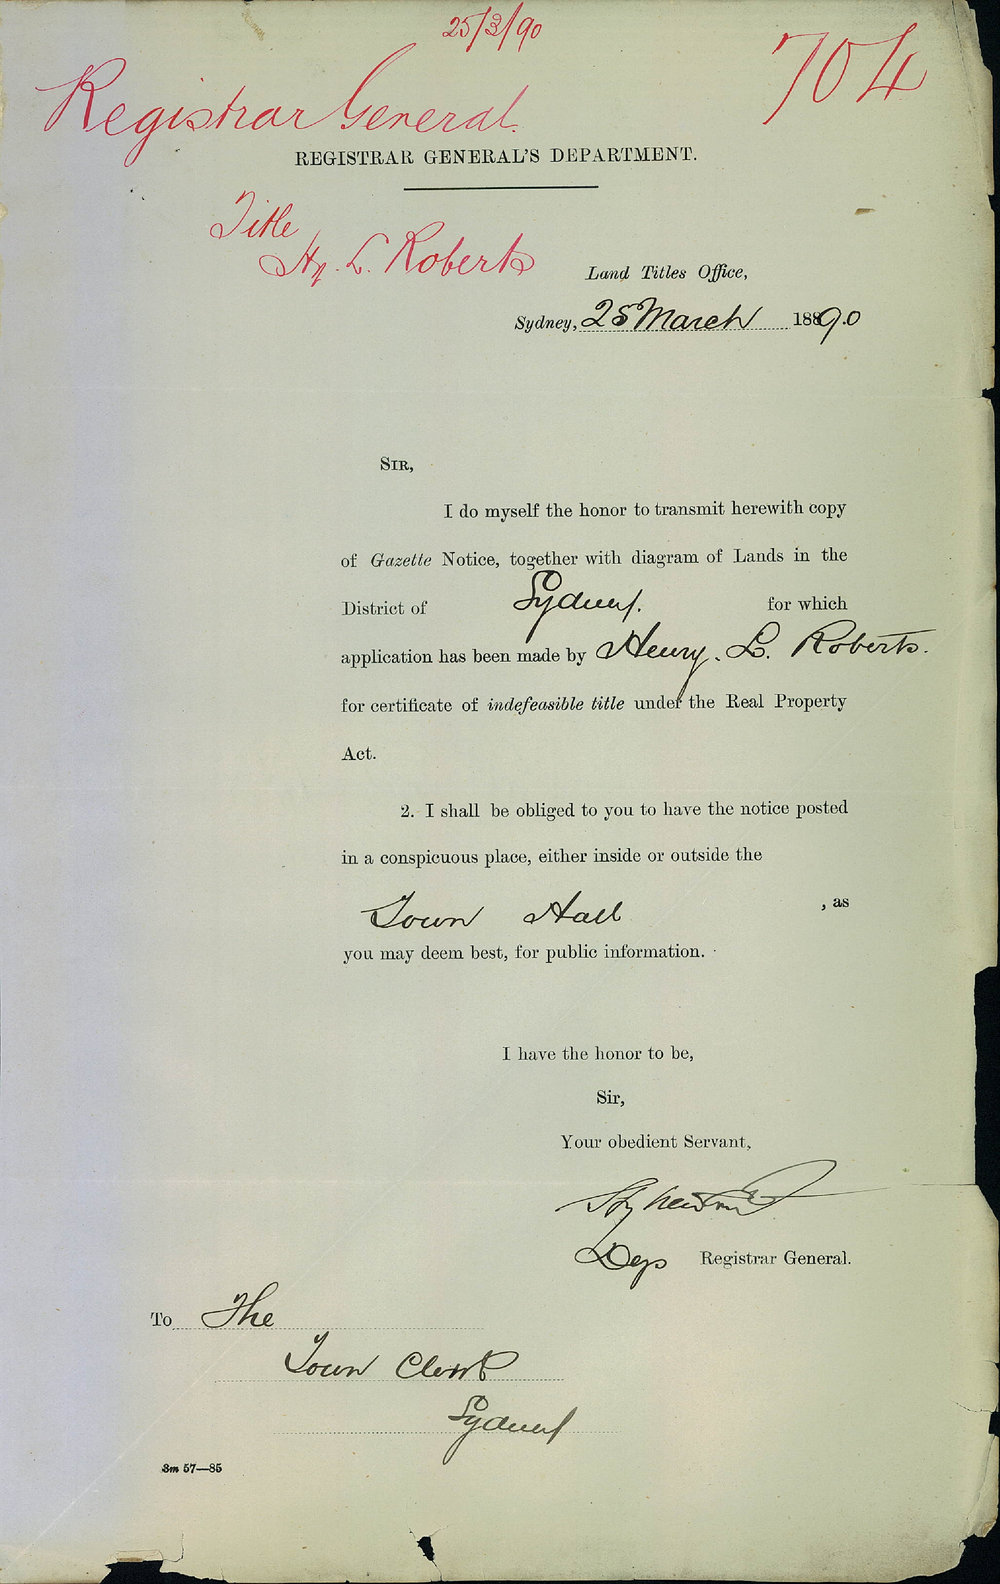 25/3/90
704
Registrar General.
REGISTRAR GENERAL'S DEPARTMENT.
Title
Hy. L. Roberts
Land Titles Office,
Sydney, 25 March 1890.
SIR,
I do myself the honor to transmit herewith copy
of Gazette Notice, together with diagram of Lands in the
District of Sydney. for which
application has been made by Henry. L. Roberts.
for certificate of indefeasible title under the Real Property
Act.
2. I shall be obliged to you to have the notice posted
in a conspicuous place, either inside or outside the
Town Hall , as
you may deem best, for public information.
I have the honor to be,
Sir,
Your obedient Servant,
Dep Registrar General.
To The
Town Clerk
Sydney
3m 57—85